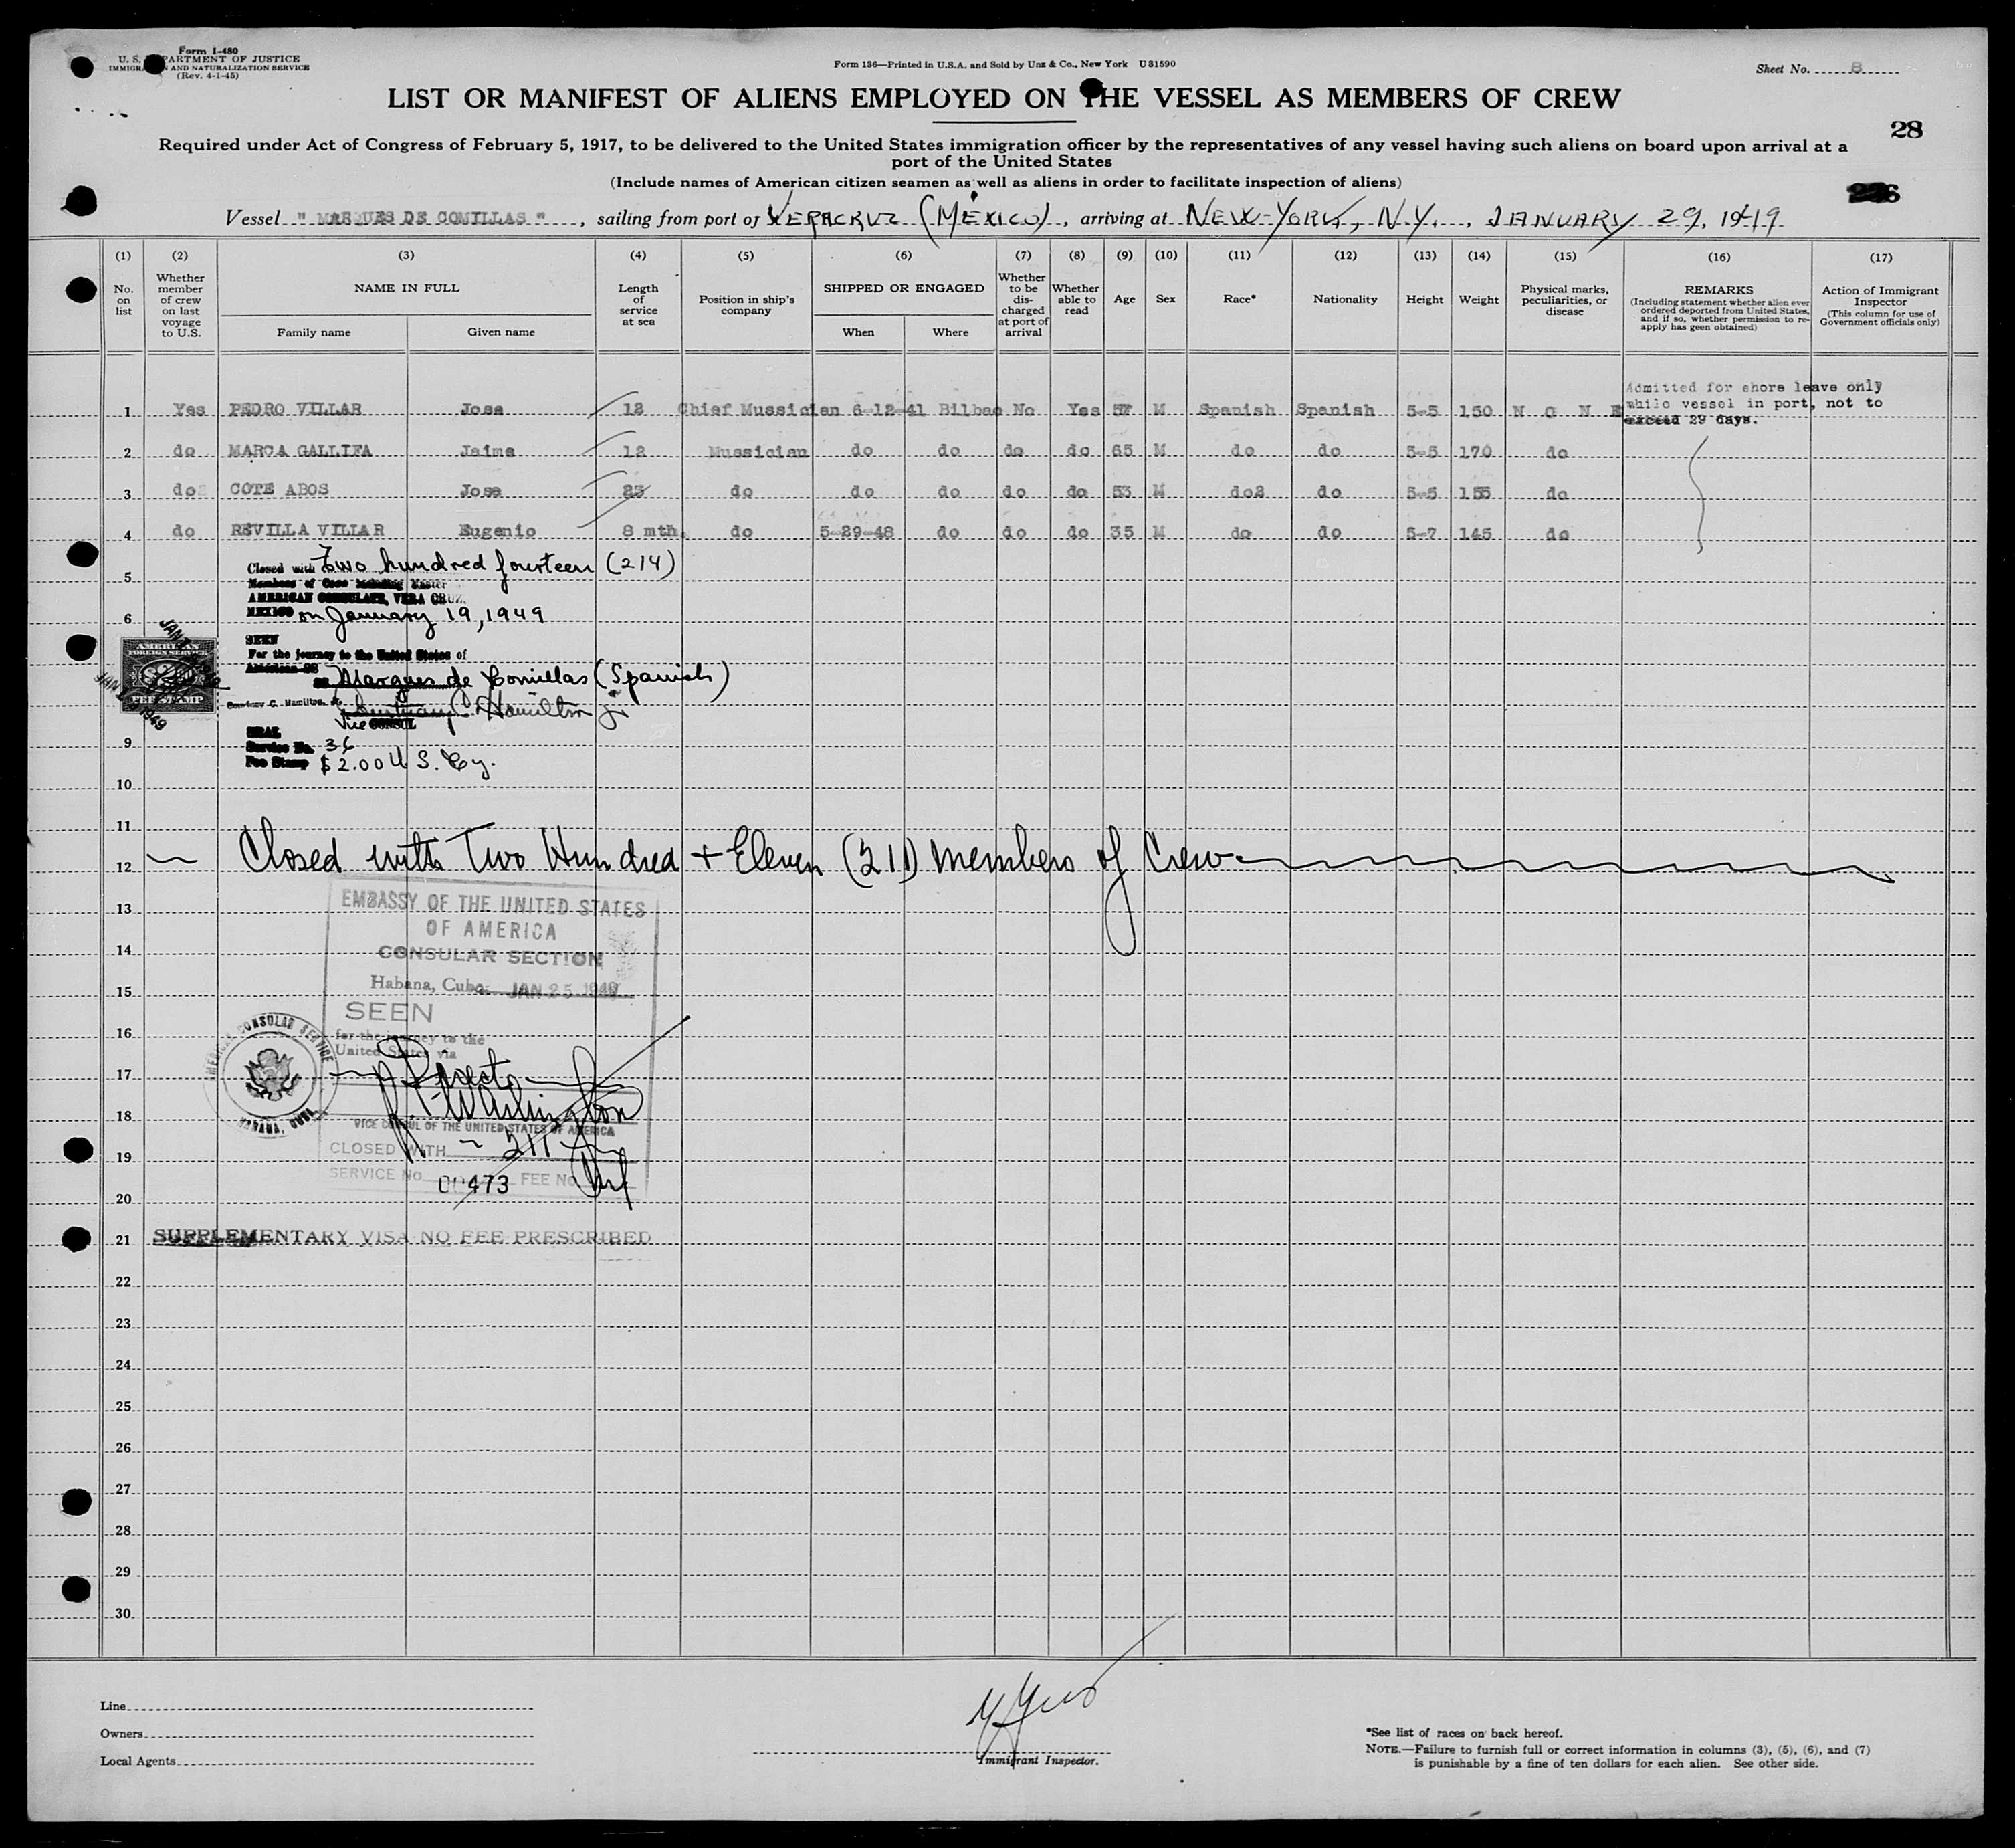 Form I-480
U. S. DEPARTMENT OF JUSTICE
IMMIGRATION AND NATURALIZATION SERVICE
(Rev. 4-1-45)
Form 136—Printed in U.S.A. and Sold by Unz & Co., New York U 31590
Sheet No. 8
LIST OR MANIFEST OF ALIENS EMPLOYED ON THE VESSEL AS MEMBERS OF CREW
28
Required under Act of Congress of February 5, 1917, to be delivered to the United States immigration officer by the representatives of any vessel having such aliens on board upon arrival at a
port of the United States
(Include names of American citizen seamen as well as aliens in order to facilitate inspection of aliens)
Vessel " MARQUES DE COMILLAS ", sailing from port of VERACRUZ (MÉXICO), arriving at NEW-YORK, N.Y., JANUARY 29, 1949
(1) No. on list
(2) Whether member of crew on last voyage to U.S.
(3) NAME IN FULL Family name Given name
(4) Length of service at sea
(5) Position in ship's company
(6) SHIPPED OR ENGAGED When Where
(7) Whether to be discharged at port of arrival
(8) Whether able to read
(9) Age
(10) Sex
(11) Race*
(12) Nationality
(13) Height
(14) Weight
(15) Physical marks, peculiarities, or disease
(16) REMARKS (Including statement whether alien ever ordered deported from United States, and if so, whether permission to re-apply has geen obtained)
(17) Action of Immigrant Inspector (This column for use of Government officials only)
Admitted for shore leave only
while vessel in port, not to
exceed 29 days.
1 Yes PEDRO VILLAR Jose 12 Chief Mussician 6-12-41 Bilbao No Yes 57 M Spanish Spanish 5-5 150 N O N E
2 do MARCA GALLIFA Jaime 12 Mussician do do do do 65 M do do 5-5 170 do
3 do COTE ABOS Jose 23 do do do do do 53 M do do 5-5 155 do
4 do REVILLA VILLAR Eugenio 8 mth. do 5-29-48 do do do 35 M do do 5-7 145 do
Closed with Two hundred fourteen (214)
5
Members of Crew including Master
AMERICAN CONSULATE, VERA CRUZ,
6
MEXICO on January 19, 1949
SEEN
For the journey to the United States of
AMERICAN FOREIGN SERVICE
FEE STAMP
SS Marques de Comillas (Spanish)
Courtney C. Hamilton, Jr. Courtney C. Hamilton Jr
Vice CONSUL
SEAL
9
Service No. 36
Fee Stamp $2.00 U.S. Cy.
10
11
12 Closed with Two Hundred + Eleven (211) members of Crew
EMBASSY OF THE UNITED STATES
13
OF AMERICA
14
CONSULAR SECTION
Habana, Cuba JAN 25 1949
15
SEEN
16
for the journey to the
United States via
AMERICAN CONSULAR SERVICE
HABANA, CUBA
17 Direct
18 Washington
VICE CONSUL OF THE UNITED STATES OF AMERICA
CLOSED WITH 211
19
SERVICE No. 00473 FEE No.
20
21 SUPPLEMENTARY VISA NO FEE PRESCRIBED
22
23
24
25
26
27
28
29
30
Line
Owners
Local Agents
Immigrant Inspector.
*See list of races on back hereof.
NOTE.—Failure to furnish full or correct information in columns (3), (5), (6), and (7)
is punishable by a fine of ten dollars for each alien. See other side.